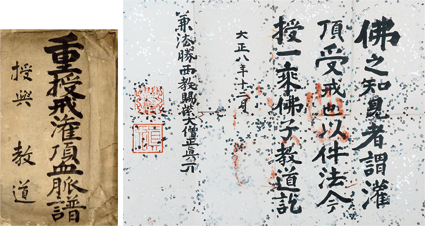 重授戒灌頂血脈譜
授與 教道
佛之知見者謂灌
頂受戒也以件法今
授一乘佛子教道訖
大正八年十二月
兼法勝西教賜紫大僧正真